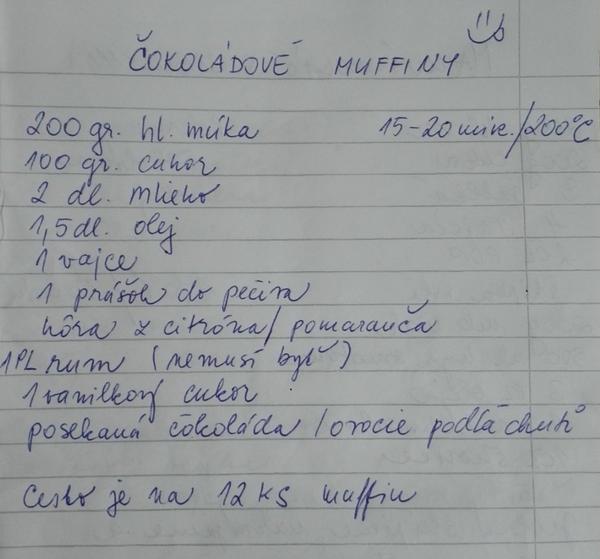 ČOKOLÁDOVÉ MUFFINY
200 gr. hl. múka 15-20 min./200°C
100 gr. cukor
2 dl. mlieko
1,5 dl. olej
1 vajce
1 prášok do pečiva
kôra z citróna/pomaranča
1PL rum (nemusí byť)
1 vanilkový cukor
posekaná čokoláda/ovocie podľa chuti
Cesto je na 12 ks muffin